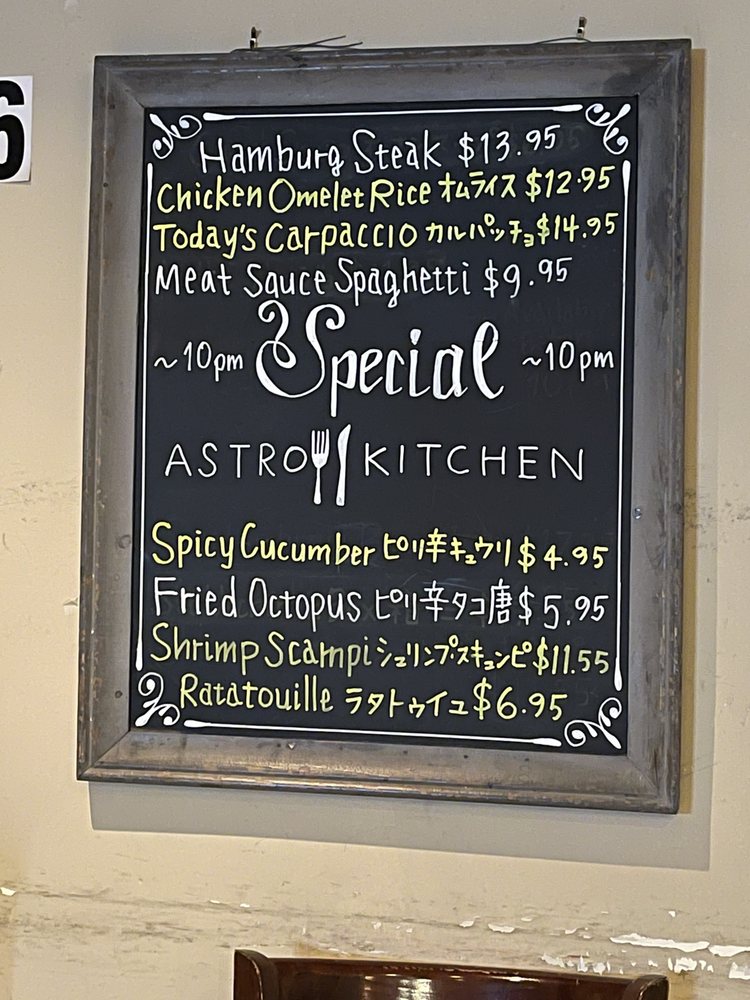 6
Hamburg Steak $13.95
Chicken Omelet Rice オムライス $12.95
Today's Carpaccio カルパッチョ $14.95
Meat Sauce Spaghetti $9.95
~10pm Special ~10pm
ASTRO KITCHEN
Spicy Cucumber ピリ辛キュウリ $4.95
Fried Octopus ピリ辛タコ唐 $5.95
Shrimp Scampi シュリンプスキュンピ $11.55
Ratatouille ラタトゥイユ $6.95